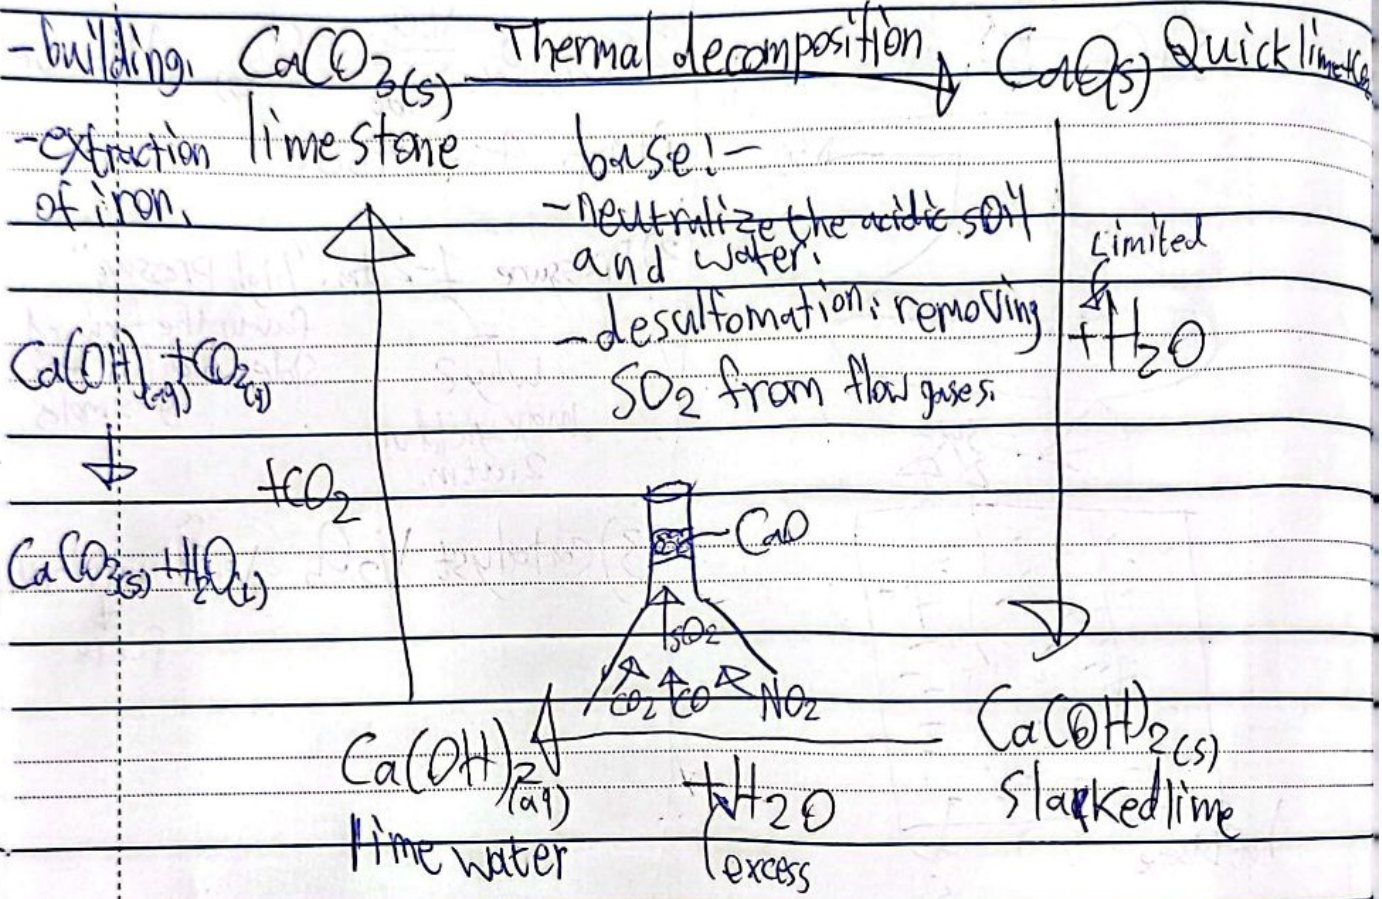 -building. CaCO3(s) Thermal decomposition CaO(s) Quick lime+CO2
-extraction of iron.
limestone
base:-
-neutralize the acidic soil
and water.
-desulfomation: removing
SO2 from flow gases.
Limited
+H2O
Ca(OH)(aq)+CO2(g)
CaCO3(s)+H2O(l)
+CO2
CaO
SO2
CO2 CO NO2
Ca(OH)2(s)
Slacked lime
+H2O
excess
Ca(OH)2(aq)
lime water